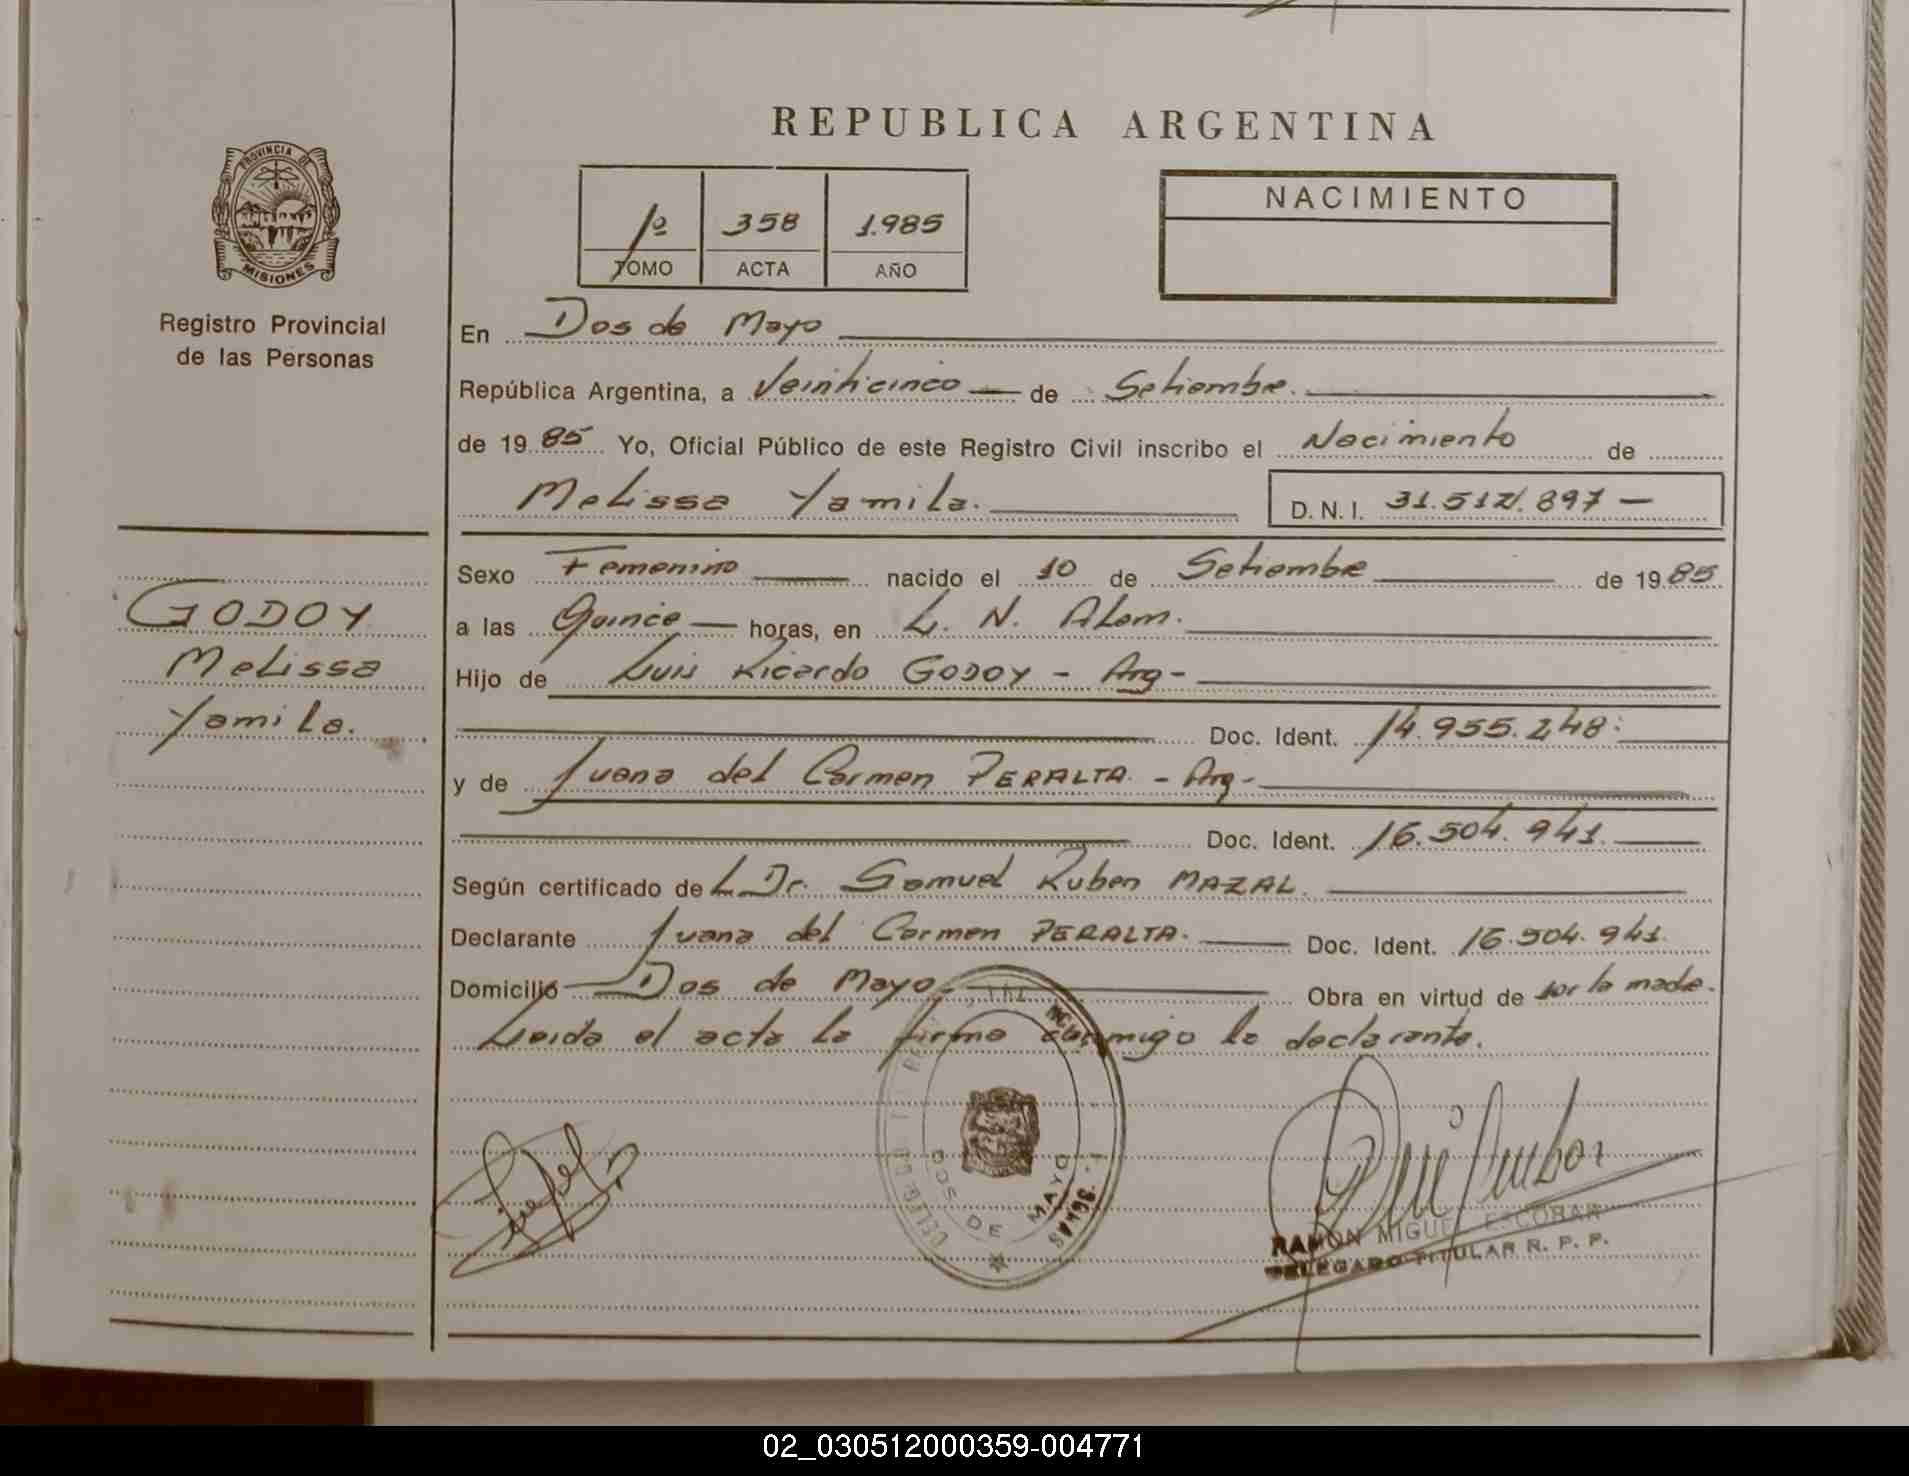 REPUBLICA ARGENTINA
PROVINCIA DE
MISIONES
Registro Provincial
de las Personas
1º 358 1.985
TOMO ACTA AÑO
NACIMIENTO
En Dos de Mayo
República Argentina, a Veinticinco de Setiembre.
de 19 85 Yo, Oficial Público de este Registro Civil inscribo el Nacimiento de
Melissa Yamila.
D. N. I. 31.512.897 —
GODOY
Melissa
Yamila.
Sexo Femenino nacido el 10 de Setiembre de 19 85
a las Quince horas, en L. N. Alem.
Hijo de Luis Ricardo GODOY - Arg -
Doc. Ident. 14.955.248.
y de Juana del Carmen PERALTA. - Arg -
Doc. Ident. 16.504.941.
Según certificado del Dr. Samuel Ruben MAZAL.
Declarante Juana del Carmen PERALTA. Doc. Ident. 16.504.941.
Domicilio Dos de Mayo. Obra en virtud de ser la madre.
Leida el acta la firma conmigo la declarante.
DOS DE MAYO
RAMON MIGUEL ESCOBAR
DELEGADO TITULAR R. P. P.
02_030512000359-004771